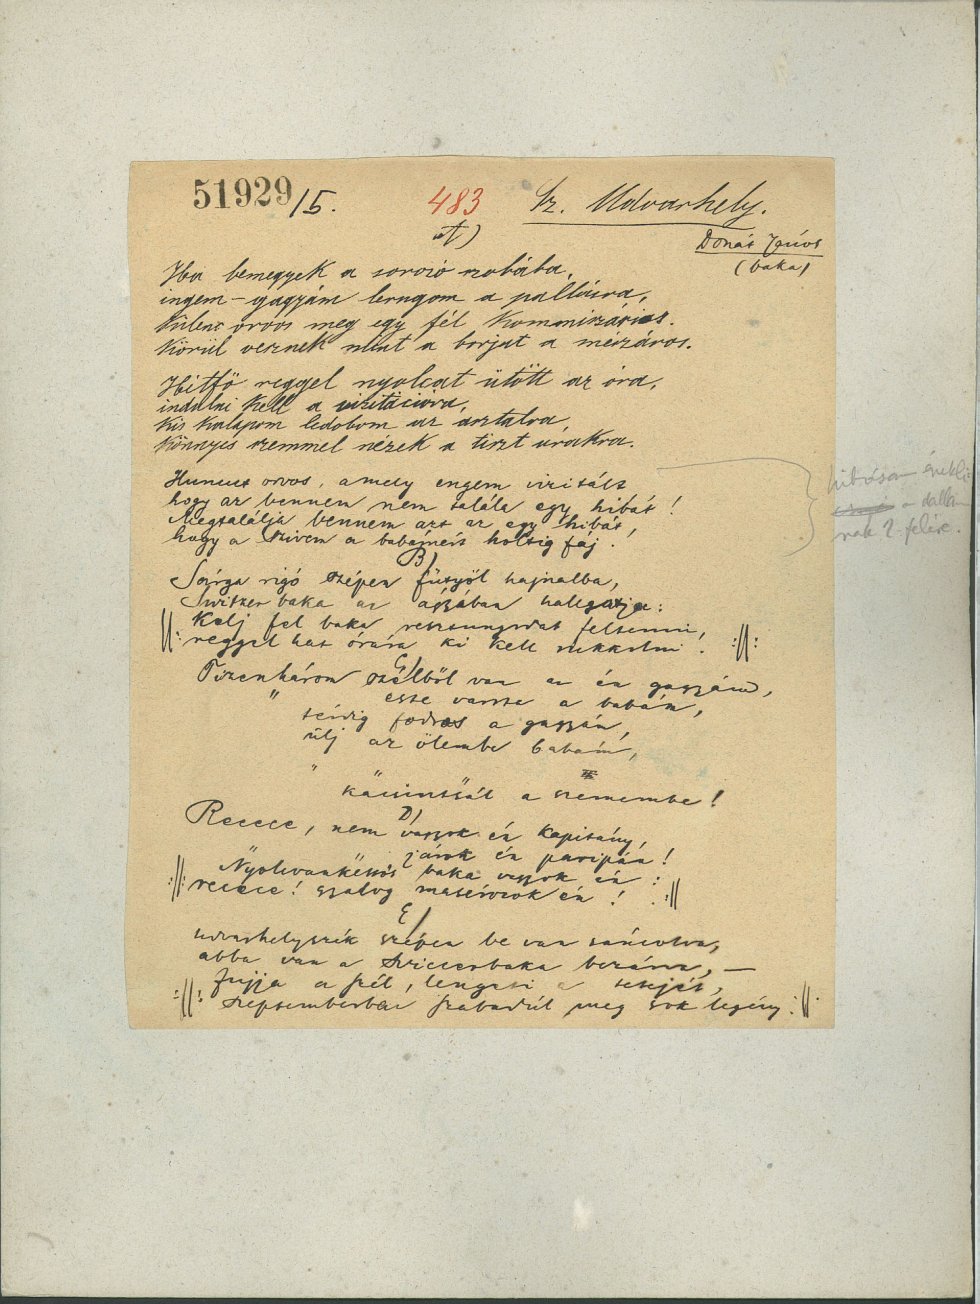 51929/5. 483 Sz. Udvarhely.
A)
Donát János
(baka)
Ha bemegyek a sorozó szobába,
ingem – gagyám lerugom a pallásra,
Kilenc orvos meg egy fél Kommiszáros.
Körül vesznek mint a borjut a mészáros.
Hétfő reggel nyolcat ütött az óra,
indulni kell a vizitációra,
Kis kalapom ledobom az asztalra,
Könnyes szemmel nézek a tiszt urakra.
Huncut orvos, amely engem vizitált
hogy az bennem nem talála egy hibát!
Megtalálja bennem azt az egy hibát,
hogy a szivem a babáméit holtig fáj!
hibásan énekli
a dallam-
nak 2. felét.
B)
Sárga rigó szépen fütyöl hajnalba,
baka az ágyában hallgatja:
||: Kelj fel baka felvenni,
reggel hat órára ki kell rukkolni. :||:
C)
Tizenhárom szélből van az én gagyám,
" este varrta a babám,
térdig fodros a gagyám,
ülj az ölembe babám,
" kácsintsál a szemembe!
D)
Recece, nem vagyok én kapitány,
járok én paripán!
:||: Nyolcvankettős baka vagyok én :
recece! gyalog masérozok én! :||
E)
udvarhelyszék szépen be van sáncolva,
abba van a bezárva, —
:||: fujja a szél, lengeti a
Szeptemberbe szabadúl meg sok legény :||: